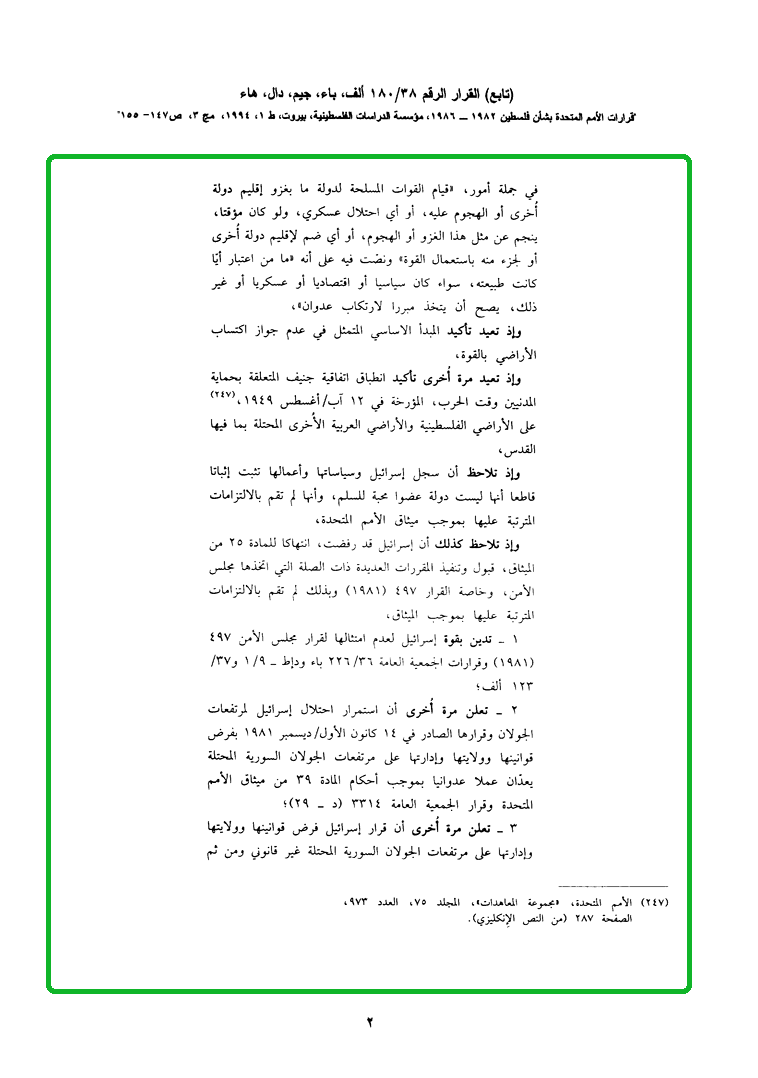 (تابع) القرار الرقم ١٨٠/٣٨ ألف، باء، جيم، دال، هاء
"قرارات الأمم المتحدة بشأن فلسطين ١٩٨٢ ــ ١٩٨٦، مؤسسة الدراسات الفلسطينية، بيروت، ط ١، ١٩٩٤، مج ٣، ص١٤٧- ١٥٥"
في جملة أمور، «قيام القوات المسلحة لدولة ما بغزو إقليم دولة
أُخرى أو الهجوم عليه، أو أي احتلال عسكري، ولو كان مؤقتا،
ينجم عن مثل هذا الغزو أو الهجوم، أو أي ضم لإقليم دولة أُخرى
أو لجزء منه باستعمال القوة» ونصّت فيه على أنه «ما من اعتبار أيّا
كانت طبيعته، سواء كان سياسيا أو اقتصاديا أو عسكريا أو غير
ذلك، يصح أن يتخذ مبررا لارتكاب عدوان»،
وإذ تعيد تأكيد المبدأ الاساسي المتمثل في عدم جواز اكتساب
الأراضي بالقوة،
وإذ تعيد مرة أُخرى تأكيد انطباق اتفاقية جنيف المتعلقة بحماية
المدنيين وقت الحرب، المؤرخة في ١٢ آب/أغسطس ١٩٤٩،(٢٤٧)
على الأراضي الفلسطينية والأراضي العربية الأُخرى المحتلة بما فيها
القدس،
وإذ تلاحظ أن سجل إسرائيل وسياساتها وأعمالها تثبت إثباتا
قاطعا أنها ليست دولة عضوا محبة للسلم، وأنها لم تقم بالالتزامات
المترتبة عليها بموجب ميثاق الأمم المتحدة،
وإذ تلاحظ كذلك أن إسرائيل قد رفضت، انتهاكا للمادة ٢٥ من
الميثاق، قبول وتنفيذ المقررات العديدة ذات الصلة التي اتخذها مجلس
الأمن، وخاصة القرار ٤٩٧ (١٩٨١) وبذلك لم تقم بالالتزامات
المترتبة عليها بموجب الميثاق،
١ ـ تدين بقوة إسرائيل لعدم امتثالها لقرار مجلس الأمن ٤٩٧
(١٩٨١) وقرارات الجمعية العامة ٢٢٦/٣٦ باء ودإط ـ ١/٩ و٣٧/
١٢٣ ألف؛
٢ ـ تعلن مرة أُخرى أن استمرار احتلال إسرائيل لمرتفعات
الجولان وقرارها الصادر في ١٤ كانون الأول/ديسمبر ١٩٨١ بفرض
قوانينها وولايتها وإدارتها على مرتفعات الجولان السورية المحتلة
يعدّان عملا عدوانيا بموجب أحكام المادة ٣٩ من ميثاق الأمم
المتحدة وقرار الجمعية العامة ٣٣١٤ (د ـ ٢٩)؛
٣ ـ تعلن مرة أُخرى أن قرار إسرائيل فرض قوانينها وولايتها
وإدارتها على مرتفعات الجولان السورية المحتلة غير قانوني ومن ثم
(٢٤٧) الأمم المتحدة، «مجموعة المعاهدات»، المجلد ٧٥، العدد ٩٧٣،
الصفحة ٢٨٧ (من النص الإنكليزي).
٢